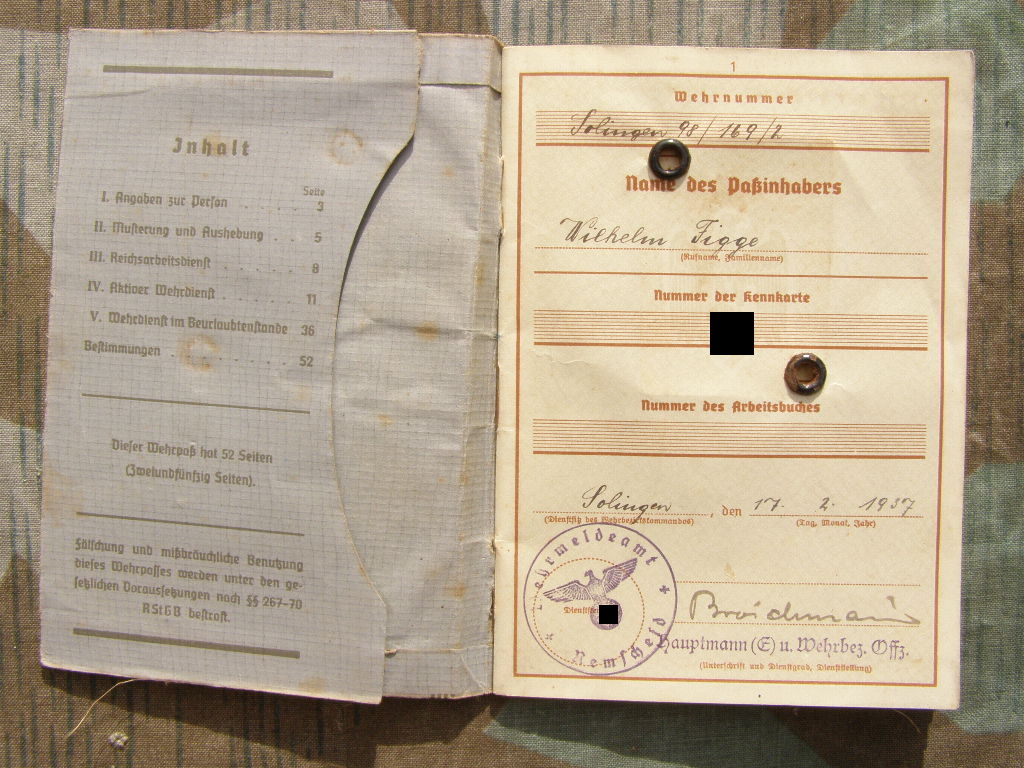 Inhalt
Seite
I. Angaben zur Person . . . . . 3
II. Musterung und Aushebung . . 5
III. Reichsarbeitsdienst . . . . . . 8
IV. Aktiver Wehrdienst . . . . . . 11
V. Wehrdienst im Beurlaubtenstande 36
Bestimmungen . . . . . . . . . 52
Dieser Wehrpaß hat 52 Seiten
(Zweiundfünfzig Seiten).
Fälschung und mißbräuchliche Benutzung
dieses Wehrpasses werden unter den ge-
setzlichen Voraussetzungen nach §§ 267-70
RStGB bestraft.
1
Wehrnummer
Solingen 98/169/2
Name des Paßinhabers
Wilhelm Figge
(Rufname, Familienname)
Nummer der Kennkarte
Nummer des Arbeitsbuches
Solingen, den 17. 2. 1937
(Dienstsitz des Wehrbezirkskommandos) (Tag, Monat, Jahr)
Wehrmeldeamt
Remscheid
Hauptmann (E) u. Wehrbez. Offz.
(Unterschrift und Dienstgrad, Dienststellung)